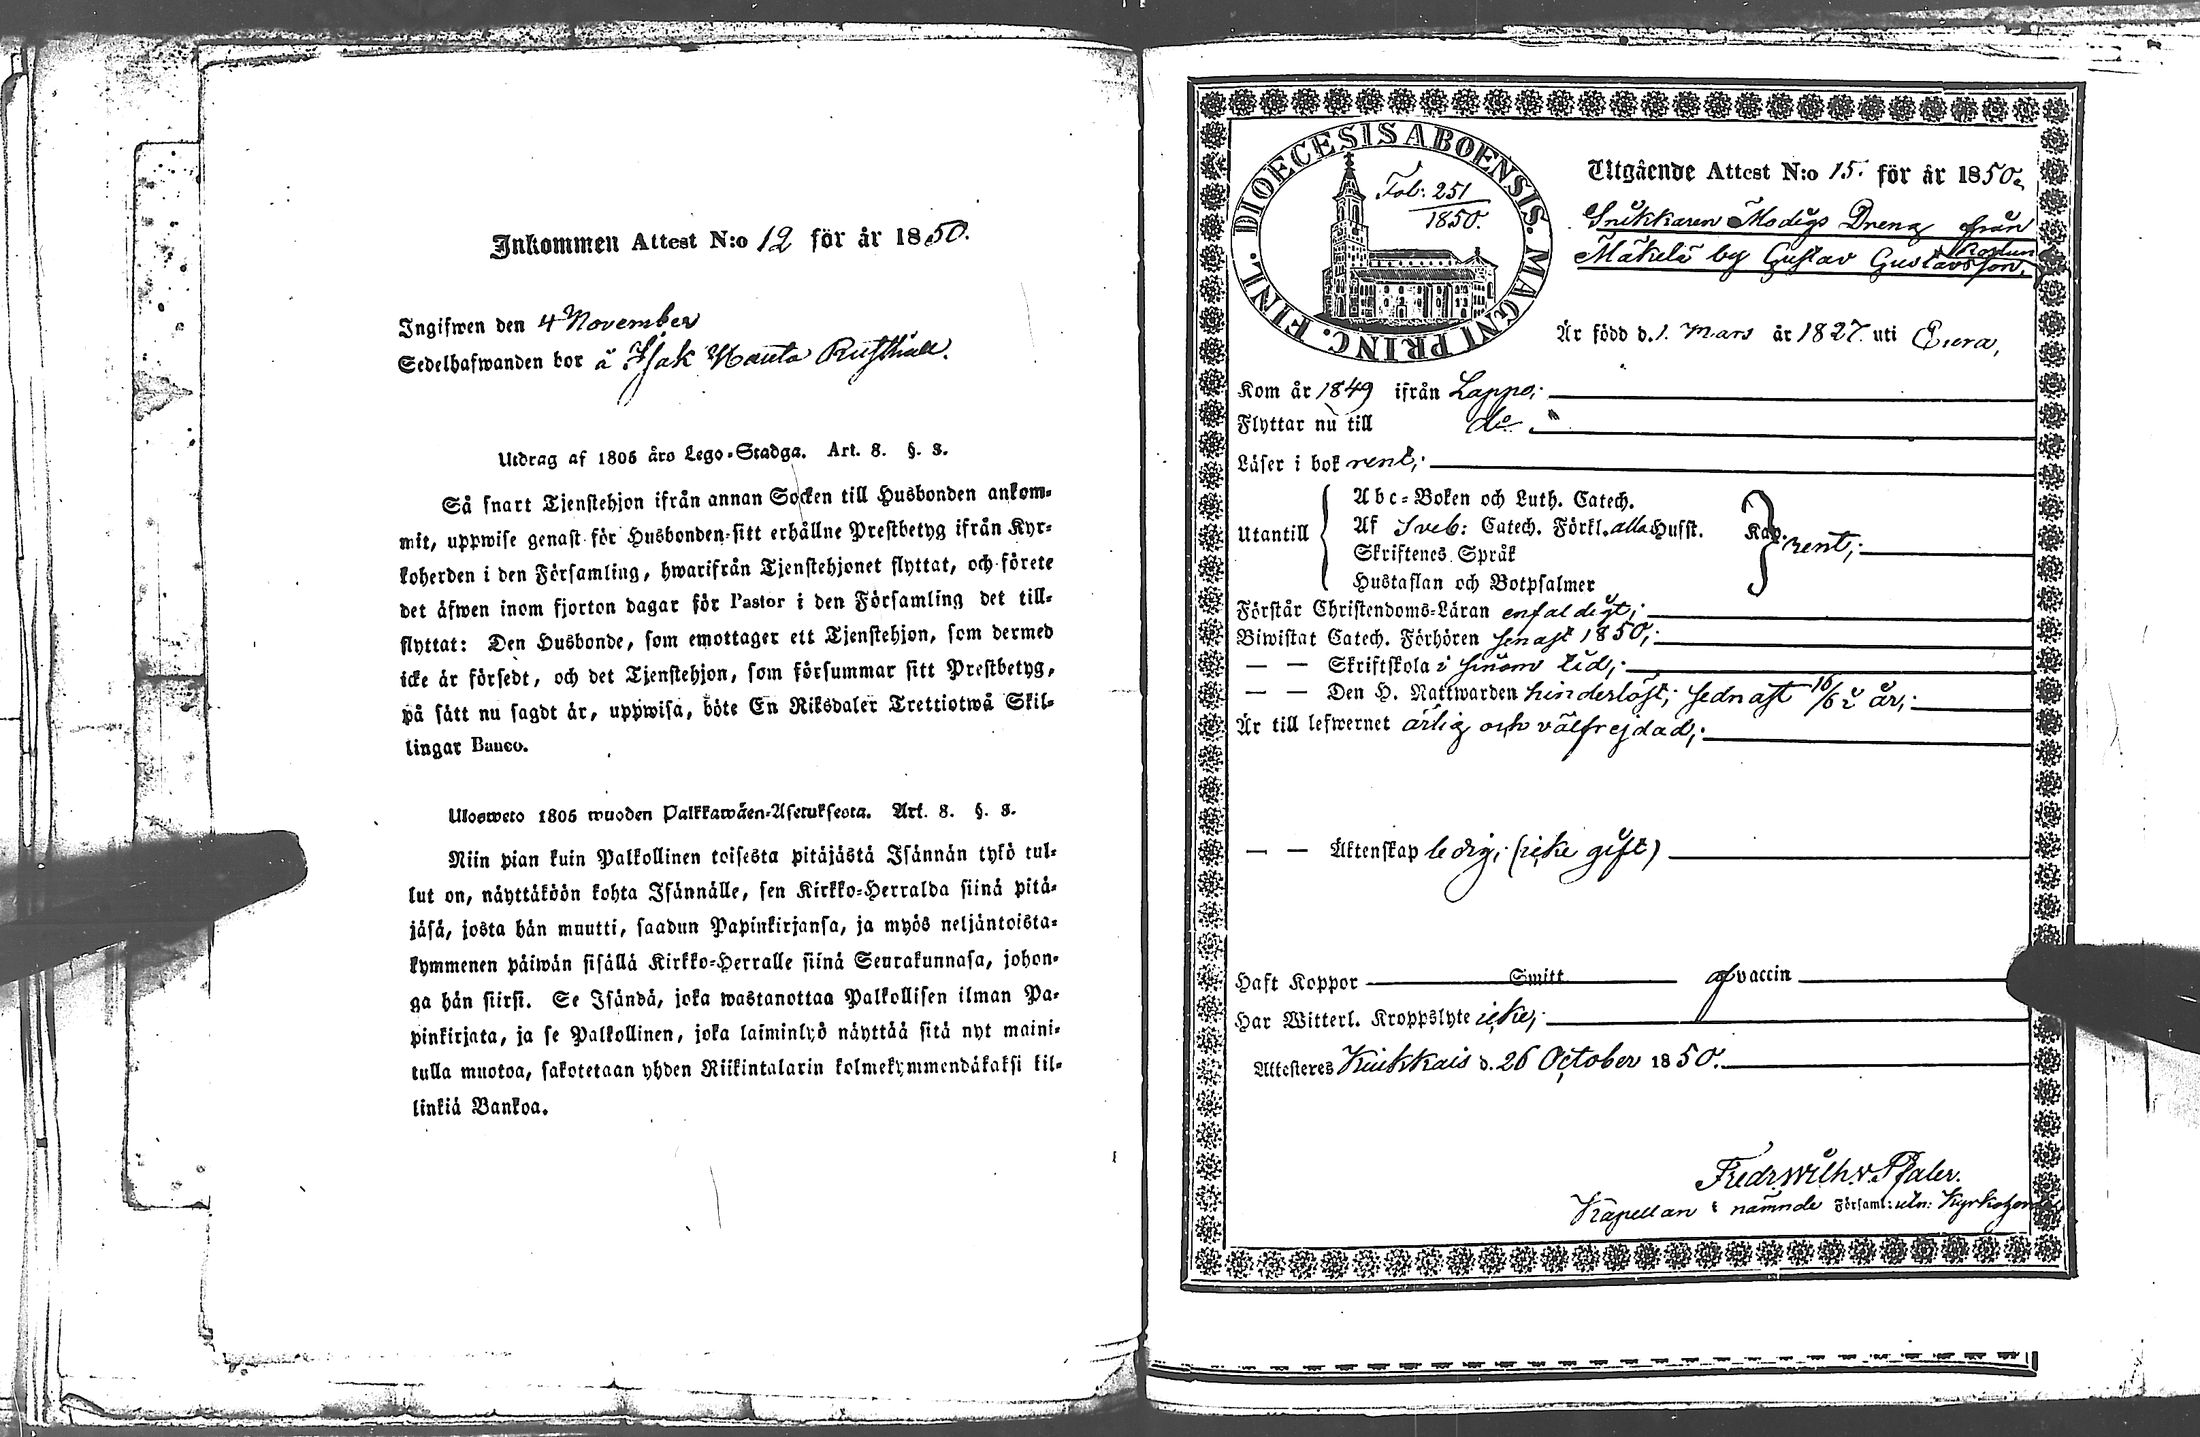 Inkommen Attest N:o 12 för år 1850.
Ingifwen den 4 November
Sedelhafwanden bor å Isak Nauta Rusthåll.
Utdrag af 1805 års Lego-Stadga. Art. 8. §. 3.
Så snart Tjenstehjon ifrån annan Socken till Husbonden ankom-
mit, uppwise genast för Husbonden sitt erhållne Prestbetyg ifrån Kyr-
koherden i den Församling, hwarifrån Tjenstehjonet flyttat, och förete
det äfwen inom fjorton dagar för Pastor i den Församling det till-
flyttat: Den Husbonde, som emottager ett Tjenstehjon, som dermed
icke är försedt, och det Tjenstehjon, som försummar sitt Prestbetyg,
på sätt nu sagdt är, uppwisa, böte En Riksdaler Trettiotwå Skil-
lingar Banco.
Ulosweto 1805 wuoden Palkkawäen-Asetuksesta. Art. 8. §. 3.
Niin pian kuin Palkollinen toisesta pitäjästä Isännän tykö tul-
lut on, näyttäköön kohta Isännälle, sen Kirkko-Herralda siinä pitä-
jäsä, josta hän muutti, saadun Papinkirjansa, ja myös neljäntoista-
kymmenen päiwän sisällä Kirkko-Herralle siinä Seurakunnasa, johon-
ga hän siirsi. Se Isändä, joka wastanottaa Palkollisen ilman Pa-
pinkirjata, ja se Palkollinen, joka laiminlyö näyttää sitä nyt maini-
tulla muotoa, sakotetaan yhden Riikintalarin kolmekymmendäkaksi kil-
linkiä Bankoa.
DIOECESIS ABOENSIS. MAGNI PRINC. FINL.
Fol: 251
1850.
Utgående Attest N:o 15. för år 1850.
Snikkaren Modigs Dreng från
Mäkelä by Gustav Gustavsson
Är född d. 1. Mars år 1827. uti Eura,
Kom år 1849 ifrån Lappo;
Flyttar nu till do
Läser i bok rent;
Utantill
Abc-Boken och Luth. Catech.
Af Sveb: Catech. Förkl. alla Hufst. Kap. rent;
Skriftenes Språk
Hustaflan och Botpsalmer
Förstår Christendoms-Läran enfaldigt;
Biwistat Catech. Förhören senast 1850;
— — Skriftskola i sinom tid;
— — Den H. Nattwarden hinderlöst; sednast 16/6 i år;
Är till lefwernet ärlig och välfrejdad;
— — Äktenskap ledig; (icke gift)
Haft Koppor Smitt af vaccin
Har Witterl. Kroppslyte icke;
Attesteres Kiukkais d. 26 October 1850.
Fredr. Wilh. v. Pfaler.
Kapellan i nämnde Församl: